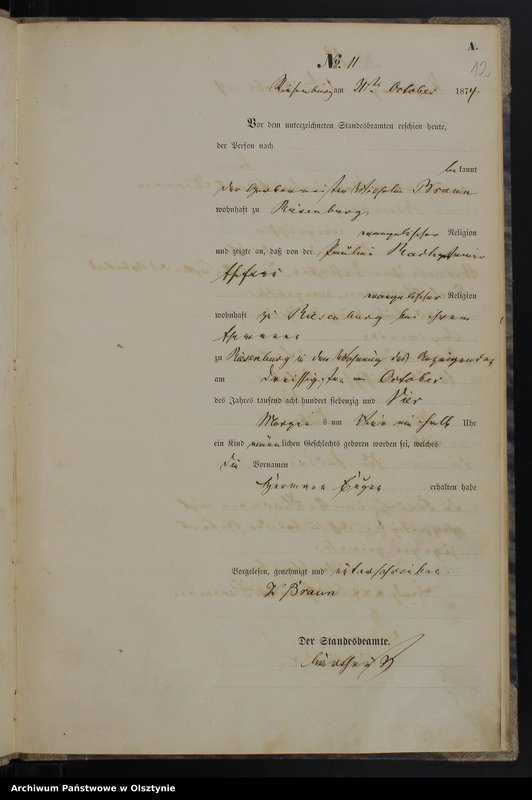 A.
12
No. 11
Riesenburg am 31ten October 1874
Vor dem unterzeichneten Standesbeamten erschien heute,
der Person nach
bekannt
der Gerbermeister Wilhelm Braun
wohnhaft zu Riesenburg
evangelischer Religion
und zeigte an, daß von der Pauline seiner
Ehefrau
evangelischer Religion
wohnhaft zu Riesenburg bei ihrem
Ehemanne
zu Riesenburg in der Wohnung des Anzeigenden
am dreissigsten October
des Jahres tausend acht hundert siebenzig und Vier
Morgens um Uhr
ein Kind männlichen Geschlechts geboren worden sei, welches
die Vornamen
Hermann Eugen erhalten habe
Vorgelesen, genehmigt und unterschrieben.
W Braun
Der Standesbeamte.
Archiwum Państwowe w Olsztynie